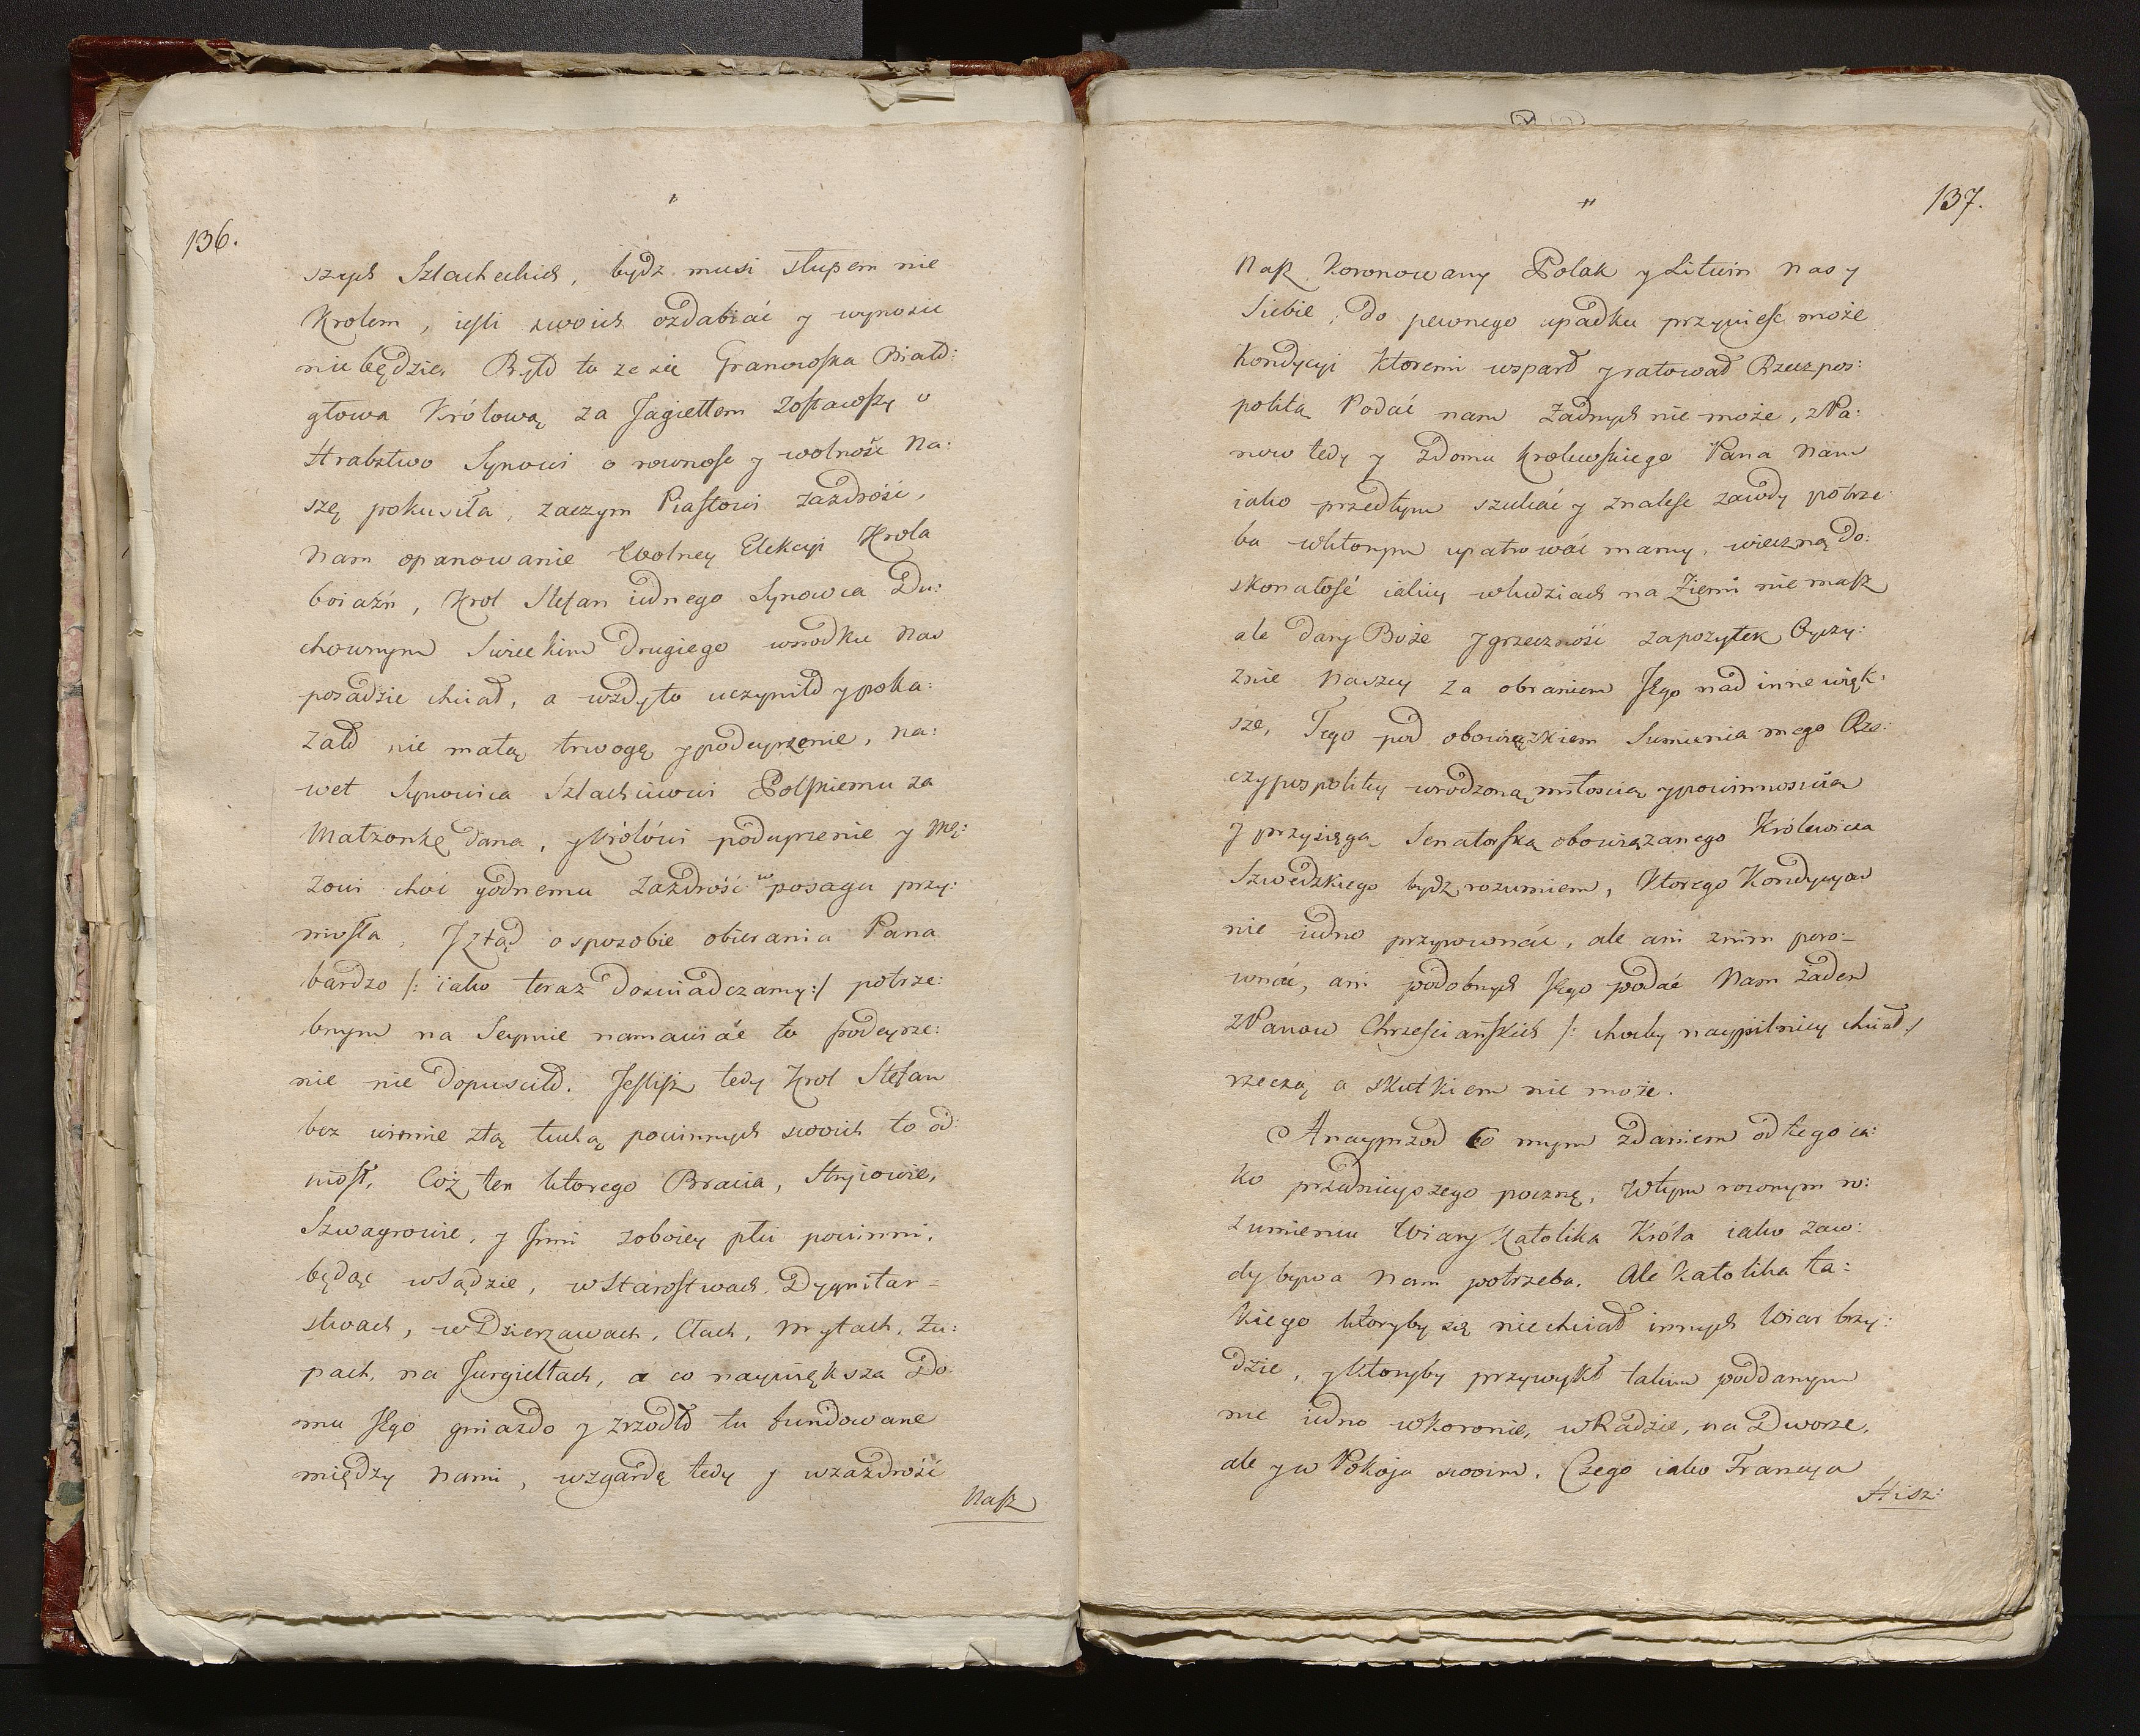 136.
szych Szlacheckich, bydz musi słupem nie
Krolem, iesli swoich ozdabiać y wynosić
nie będzie. Było to ze się Granowska Białо:
głowa Królową za Jagiełłem zostawszy o
Hrabstwo Synowi o rownosc y wolność na:
szę pokusiła, zaczym Piastowi zazdrość,
nam opanowanie Wolney Elekcyi Krola
boiaźń, Krol Stefan iednego Synowca Du:
chownym Swieckim Drugiego wsrodku nas
posadzić chciał, a wzdy to uczyniło y poka:
zało nie małą trwogę, y podeyrzenie, na:
wet Synowica Szlachcicowi Polskiemu za
Małżonkę dana, y Królowi podeyrzenie y Mę:
zowi choć godnemu zazdrość w posagu przy:
niosła, I ztąd o sposobie obierania Pana
bardzo /: iako teraz doswiadczamy :/ potrze:
bnym na Seymie namawiać to podeyrze:
nie nie dopusciło. Jeslisz tedy Krol Stefan
bez winnie złą tuchą powinnych swoich to od:
niosł, Coż ten ktorego Bracia, Stryiowie,
Szwagrowie, y Inni zoboiey płci powinni,
będąc w Sądzie, w Starostwach, Dygnitar-
stwach, w Dzierzawach, Cłach, Mytach, Żu:
pach, na Jurgieltach, a co naywiększa Do:
mu Jego gniazdo y zrzodło tu fundowane
między nami, wzgardę tedy y wzazdrość
Nasz
137.
Nasz Koronowany Polak y Litwin nas y
Siebie, do pewnego upadku przynieść może
Kondycyi ktoremi wsparł y ratował Rzeczpos:
politą Podać nam żadnych nie może, z Pa:
now tedy y z Domu Krolewskiego Pana Nam
iako przedtym szukać y znalesc zawdy potrze:
ba w ktorym upatrować mamy, wieczną do:
skonałość iakiey w ludziach na Ziemi nie masz
ale dary Boże y grzeczność zapozytek Oyczy:
znie Naszey za obraniem Jego nad inne więk:
sze, Tego pod obowiązkiem Sumienia mego Rze:
czypospolitey wrodzoną miłoscią y powinnoscią
y przysięgą Senatorską obowiązanego Królewica
Szwedzkiego bydz rozumiem, Ktorego Kondycyow
nie iedno przyrownać, ale ani znim poro-
wnać, ani podobnych Jego podać Nam żaden
z Panow Chrzesciańskich /: choćby naypilniey chciał :/
rzeczą a skutkiem nie może.
A nayprzod Co mym zdaniem od tego ia:
ko przednieyszego pocznę, W tym rownym ro:
zumieniu Wiary Katolika Króla iako zaw:
dy bywa Nam potrzeba. Ale Katolika ta:
kiego ktoryby się nie chciał innych Wiar brzy:
dzić, y ktoryby przywykł takim poddanym
nie iedno w Koronie, w Radzie, na Dworze,
ale y w Pokoju swoim. Czego iako Francya
Hisz: